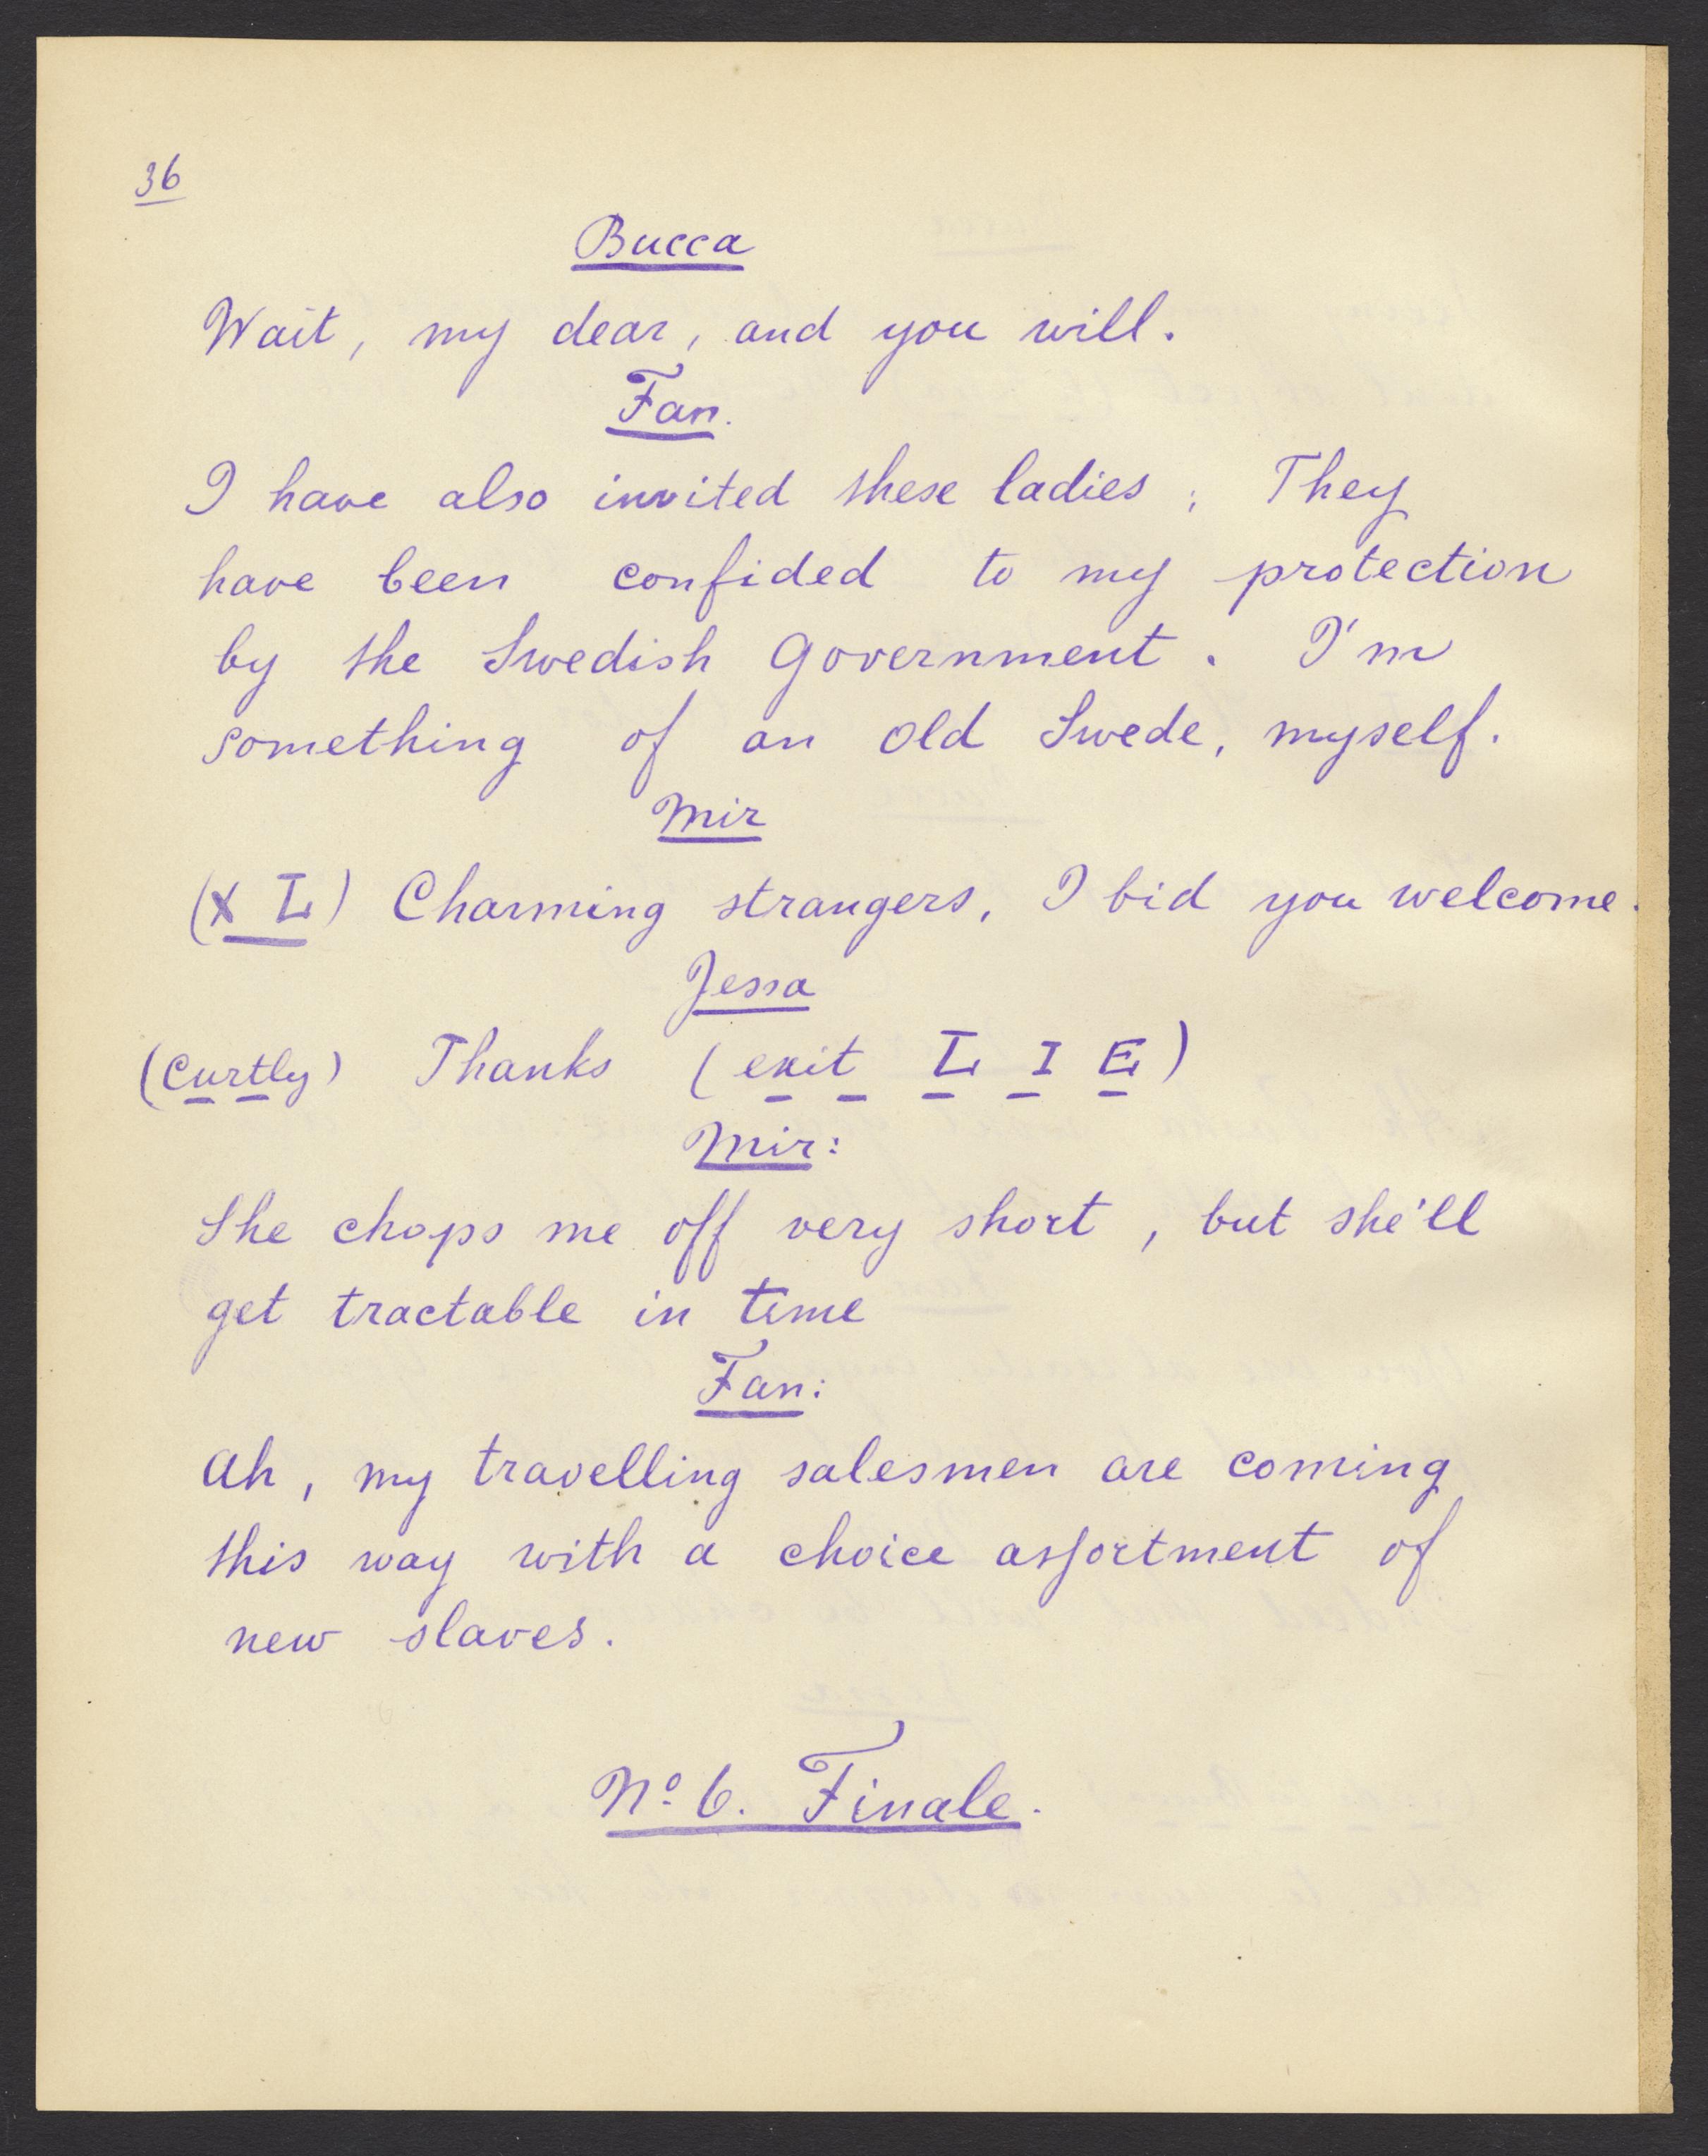 36
Bucca
Wait, my dear, and you will.
Fan.
I have also invited these ladies; They
have been confided to my protection
by the Swedish Government. I'm
something of an old Swede, myself.
Mir
(X L) Charming strangers, I bid you welcome.
Jessa
(Curtly) Thanks (exit L I E)
Mir:
She chops me off very short, but she'll
get tractable in time
Fan:
Ah, my travelling salesmen are coming
this way with a choice assortment of
new slaves.
No. 6. Finale.